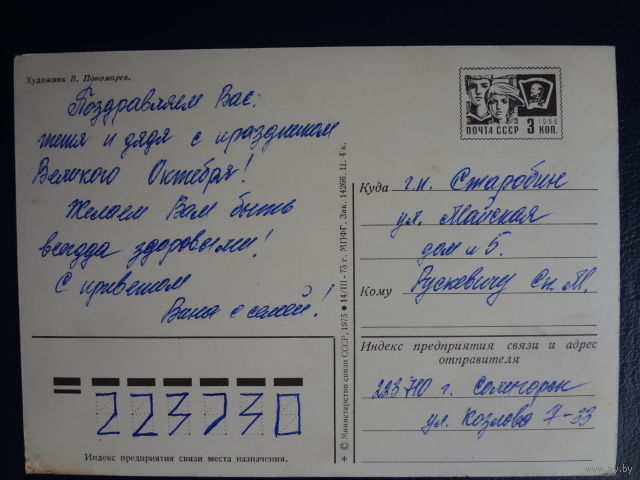 Художник В. Пономарев.
Поздравляем Вас:
тётя и дядя с праздником
Великого Октября!
Желаем Вам быть
всегда здоровыми!
С приветом
Вила с семьёй!
© Министерство связи СССР, 1975 ● 14/III-75 г., МПФГ, Зак. 14266. Ц. 4 к.
1966
ПОЧТА СССР 3 КОП.
Куда г.п. Старобин
ул. Майская
дом № 5.
Кому Рускевичу Сп. М.
Индекс предприятия связи и адрес
отправителя
223710 г. Солигорск
ул. Козлова 7-33
223730
Индекс предприятия связи места назначения.
ay.by